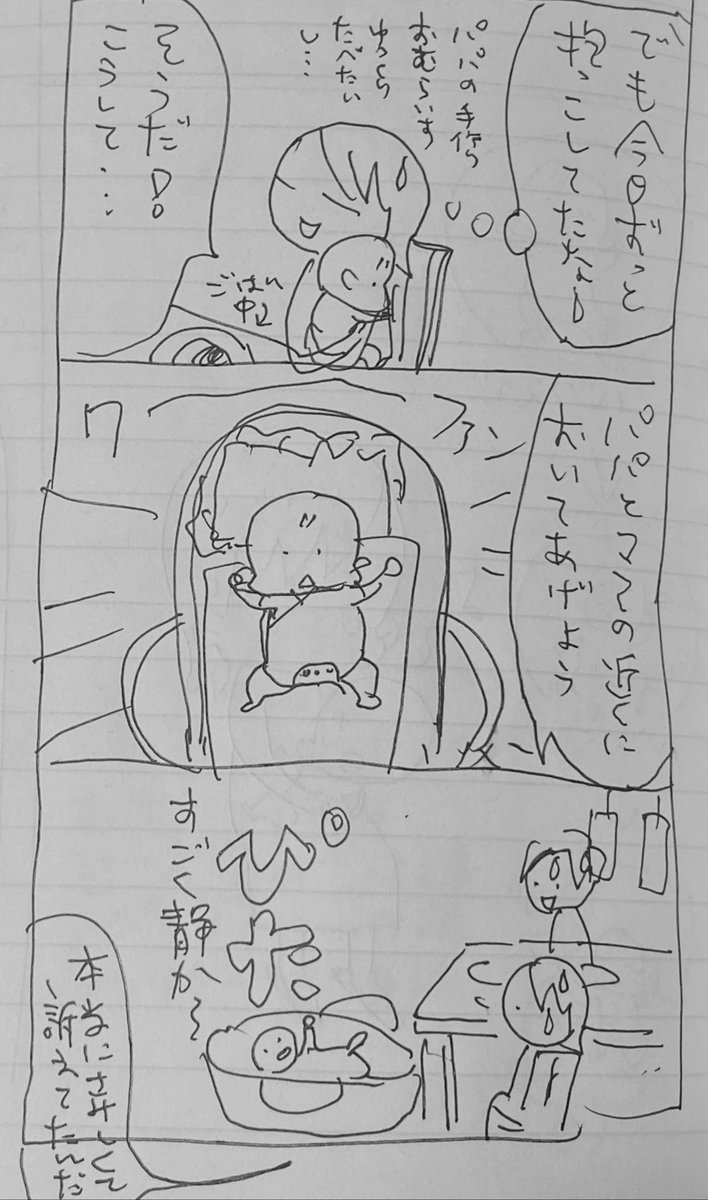 でも今日ずっと
抱っこしてたなぁ
パパの手作り
おむらいす
ゆっくり
たべたい
し…
そうだ!
こうして…
ごはん
中
パパとママの近くに
おいてあげよう
ワーーファン
ぴた…
すごく静か〜
本当にさみしくて
訴えてたんだ